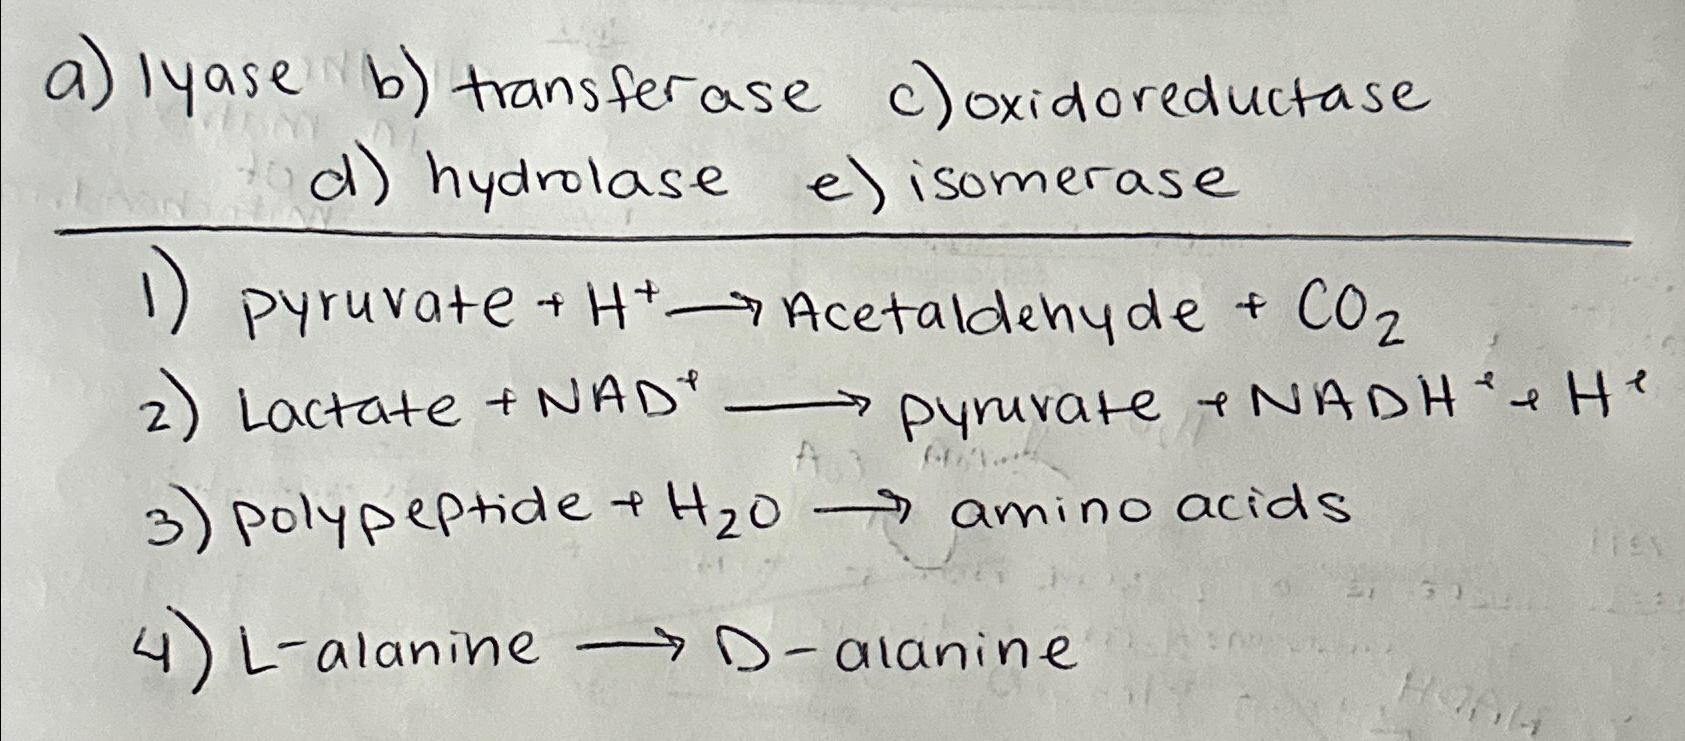 a) lyase b) transferase c) oxidoreductase
d) hydrolase e) isomerase
1) pyruvate + H⁺ → Acetaldehyde + CO₂
2) Lactate + NAD⁺ → pyruvate + NADH⁺ + H⁺
3) polypeptide + H₂O → amino acids
4) L-alanine → D-alanine